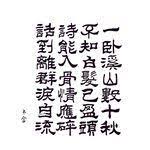 一卧溪山数十秋
不知白髮已盈頭
詩能入骨情應碎
話到離群淚自流